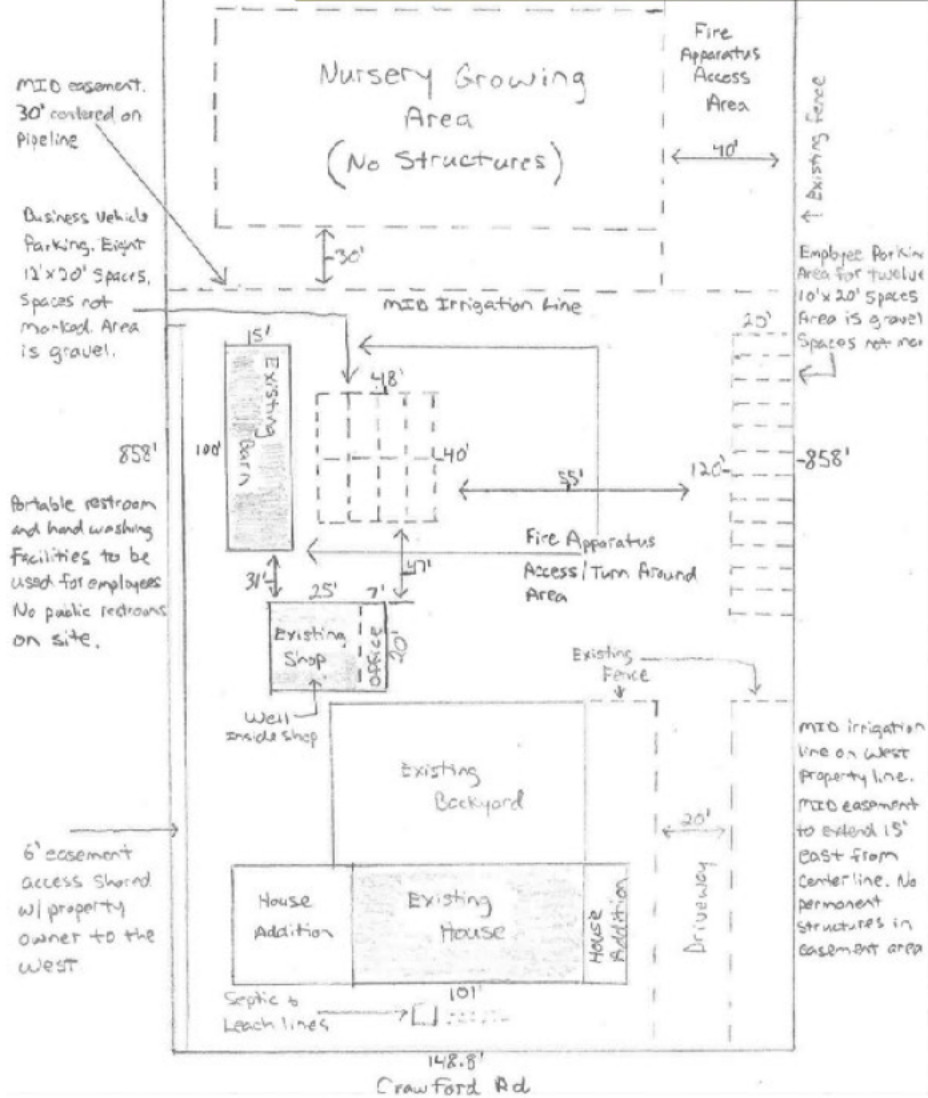 Nursery Growing
Area
(No Structures)
Fire
Apparatus
Access
Area
40'
↑ Existing Fence
MID easement.
30' centered on
Pipeline
30'
MID Irrigation Line
Business Vehicle
Parking. Eight
12'x20' Spaces.
Spaces not
marked. Area
is gravel.
Employee Parkin
Area for twelve
10'x20' Spaces
Area is gravel
Spaces not mar
15'
Existing
Barn
100'
48'
40'
55'
20'
120'
858'
858'
Portable restroom
and hand washing
Facilities to be
used for employees
No public restrooms
on site.
Fire Apparatus
Access/Turn Around
Area
31'
47'
25'
7'
20'
Existing
Shop
Office
Well
inside shop
Existing
Fence
Existing
Backyard
MID irrigation
line on west
property line.
MID easement
to extend 15'
east from
centerline. No
permanent
structures in
easement area
20'
Driveway
6' easement
access shared
w/ property
owner to the
west
House
Addition
Existing
House
House
Addition
101'
Septic &
Leach lines
148.8'
Crawford Rd